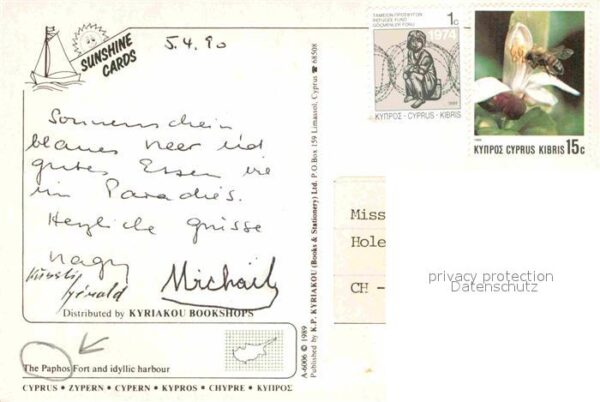 SUNSHINE
CARDS
5.4.90
Sonnenschein
blaues Meer und
gutes Essen wie
im Paradies.
Herzliche Grüsse
Nagy
Michail
Distributed by KYRIAKOU BOOKSHOPS
The Paphos Fort and idyllic harbour
CYPRUS • ZYPERN • CYPERN • KYPROS • CHYPRE • ΚΥΠΡΟΣ
A-6006 © 1989
Published by K.P. KYRIAKOU (Books & Stationery) Ltd. P.O.Box 159 Limassol, Cyprus ☎ 68508
ΤΑΜΕΙΟΝ ΠΡΟΣΦΥΓΩΝ
REFUGEE FUND
GÖÇMENLER FONU
1c
1974
ΚΥΠΡΟΣ · CYPRUS · KIBRIS
ΚΥΠΡΟΣ CYPRUS KIBRIS 15c
Miss
Hole
CH -
privacy protection
Datenschutz